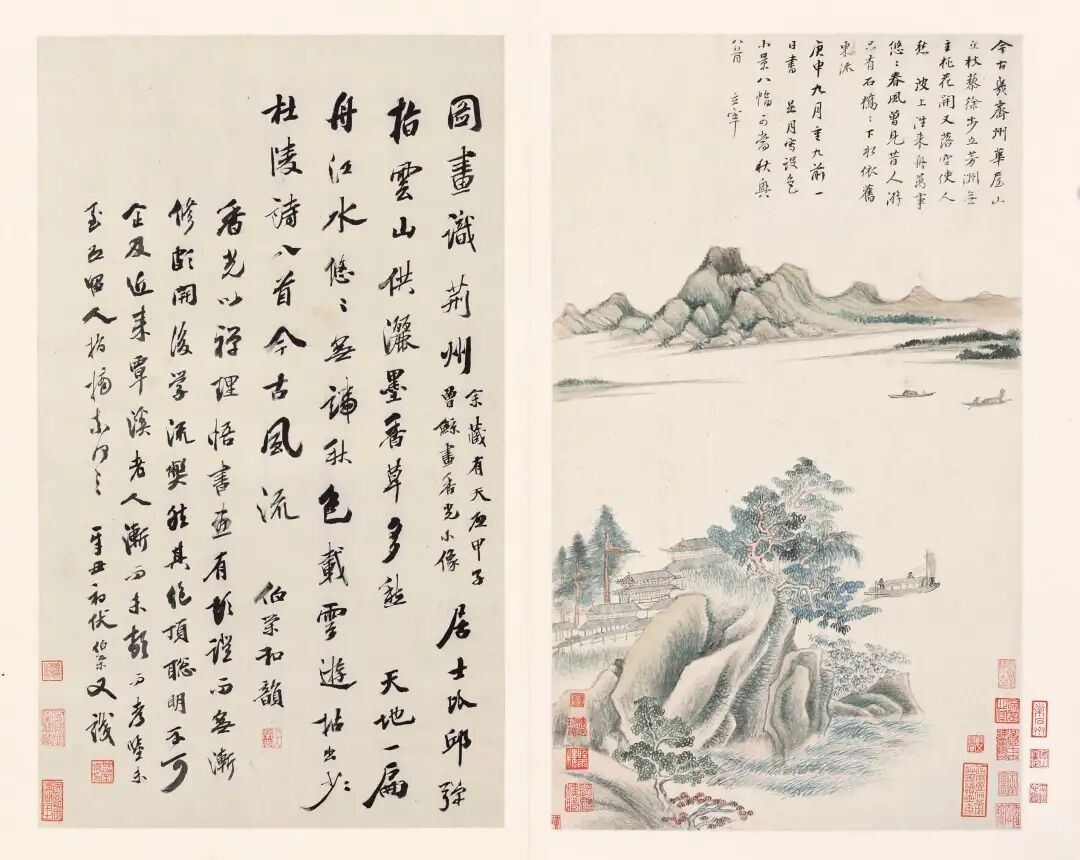 今古幾齊州華屋山
丘杖藜徐步立芳洲無
主桃花開又落空使人
愁 波上往來舟萬事
悠〻春風曾見昔人游
只有石橋〻下水依舊
東流
庚申九月重九前一
日書 是月寫設色
小景八幅可當秋興
八首 玄宰
圖畫識荊州
余藏有天啟甲子
曾鯨畫香光小像
居士林邱彈
指雲山供灑墨香草多愁 天地一扁
舟江水悠〻無端秋色載雲遊拈出少〻
杜陵詩八首今古風流 伯榮和韻
香光以禪理悟書畫有頓證而無漸
修頗開後學流弊然其絕頂聰明不可
企及近來覃溪老人漸而未頓而考
人指摘 辛丑初伏伯榮又識